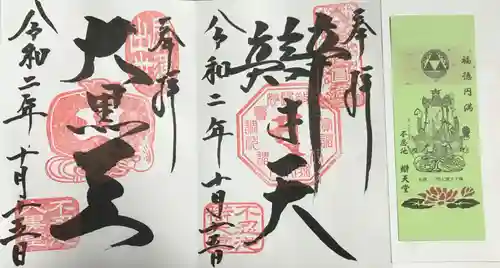 奉拝
大黒天
令和二年十月十五日
奉拝
辯才天
令和二年十月十五日
福徳円満
不忍池
辯天堂